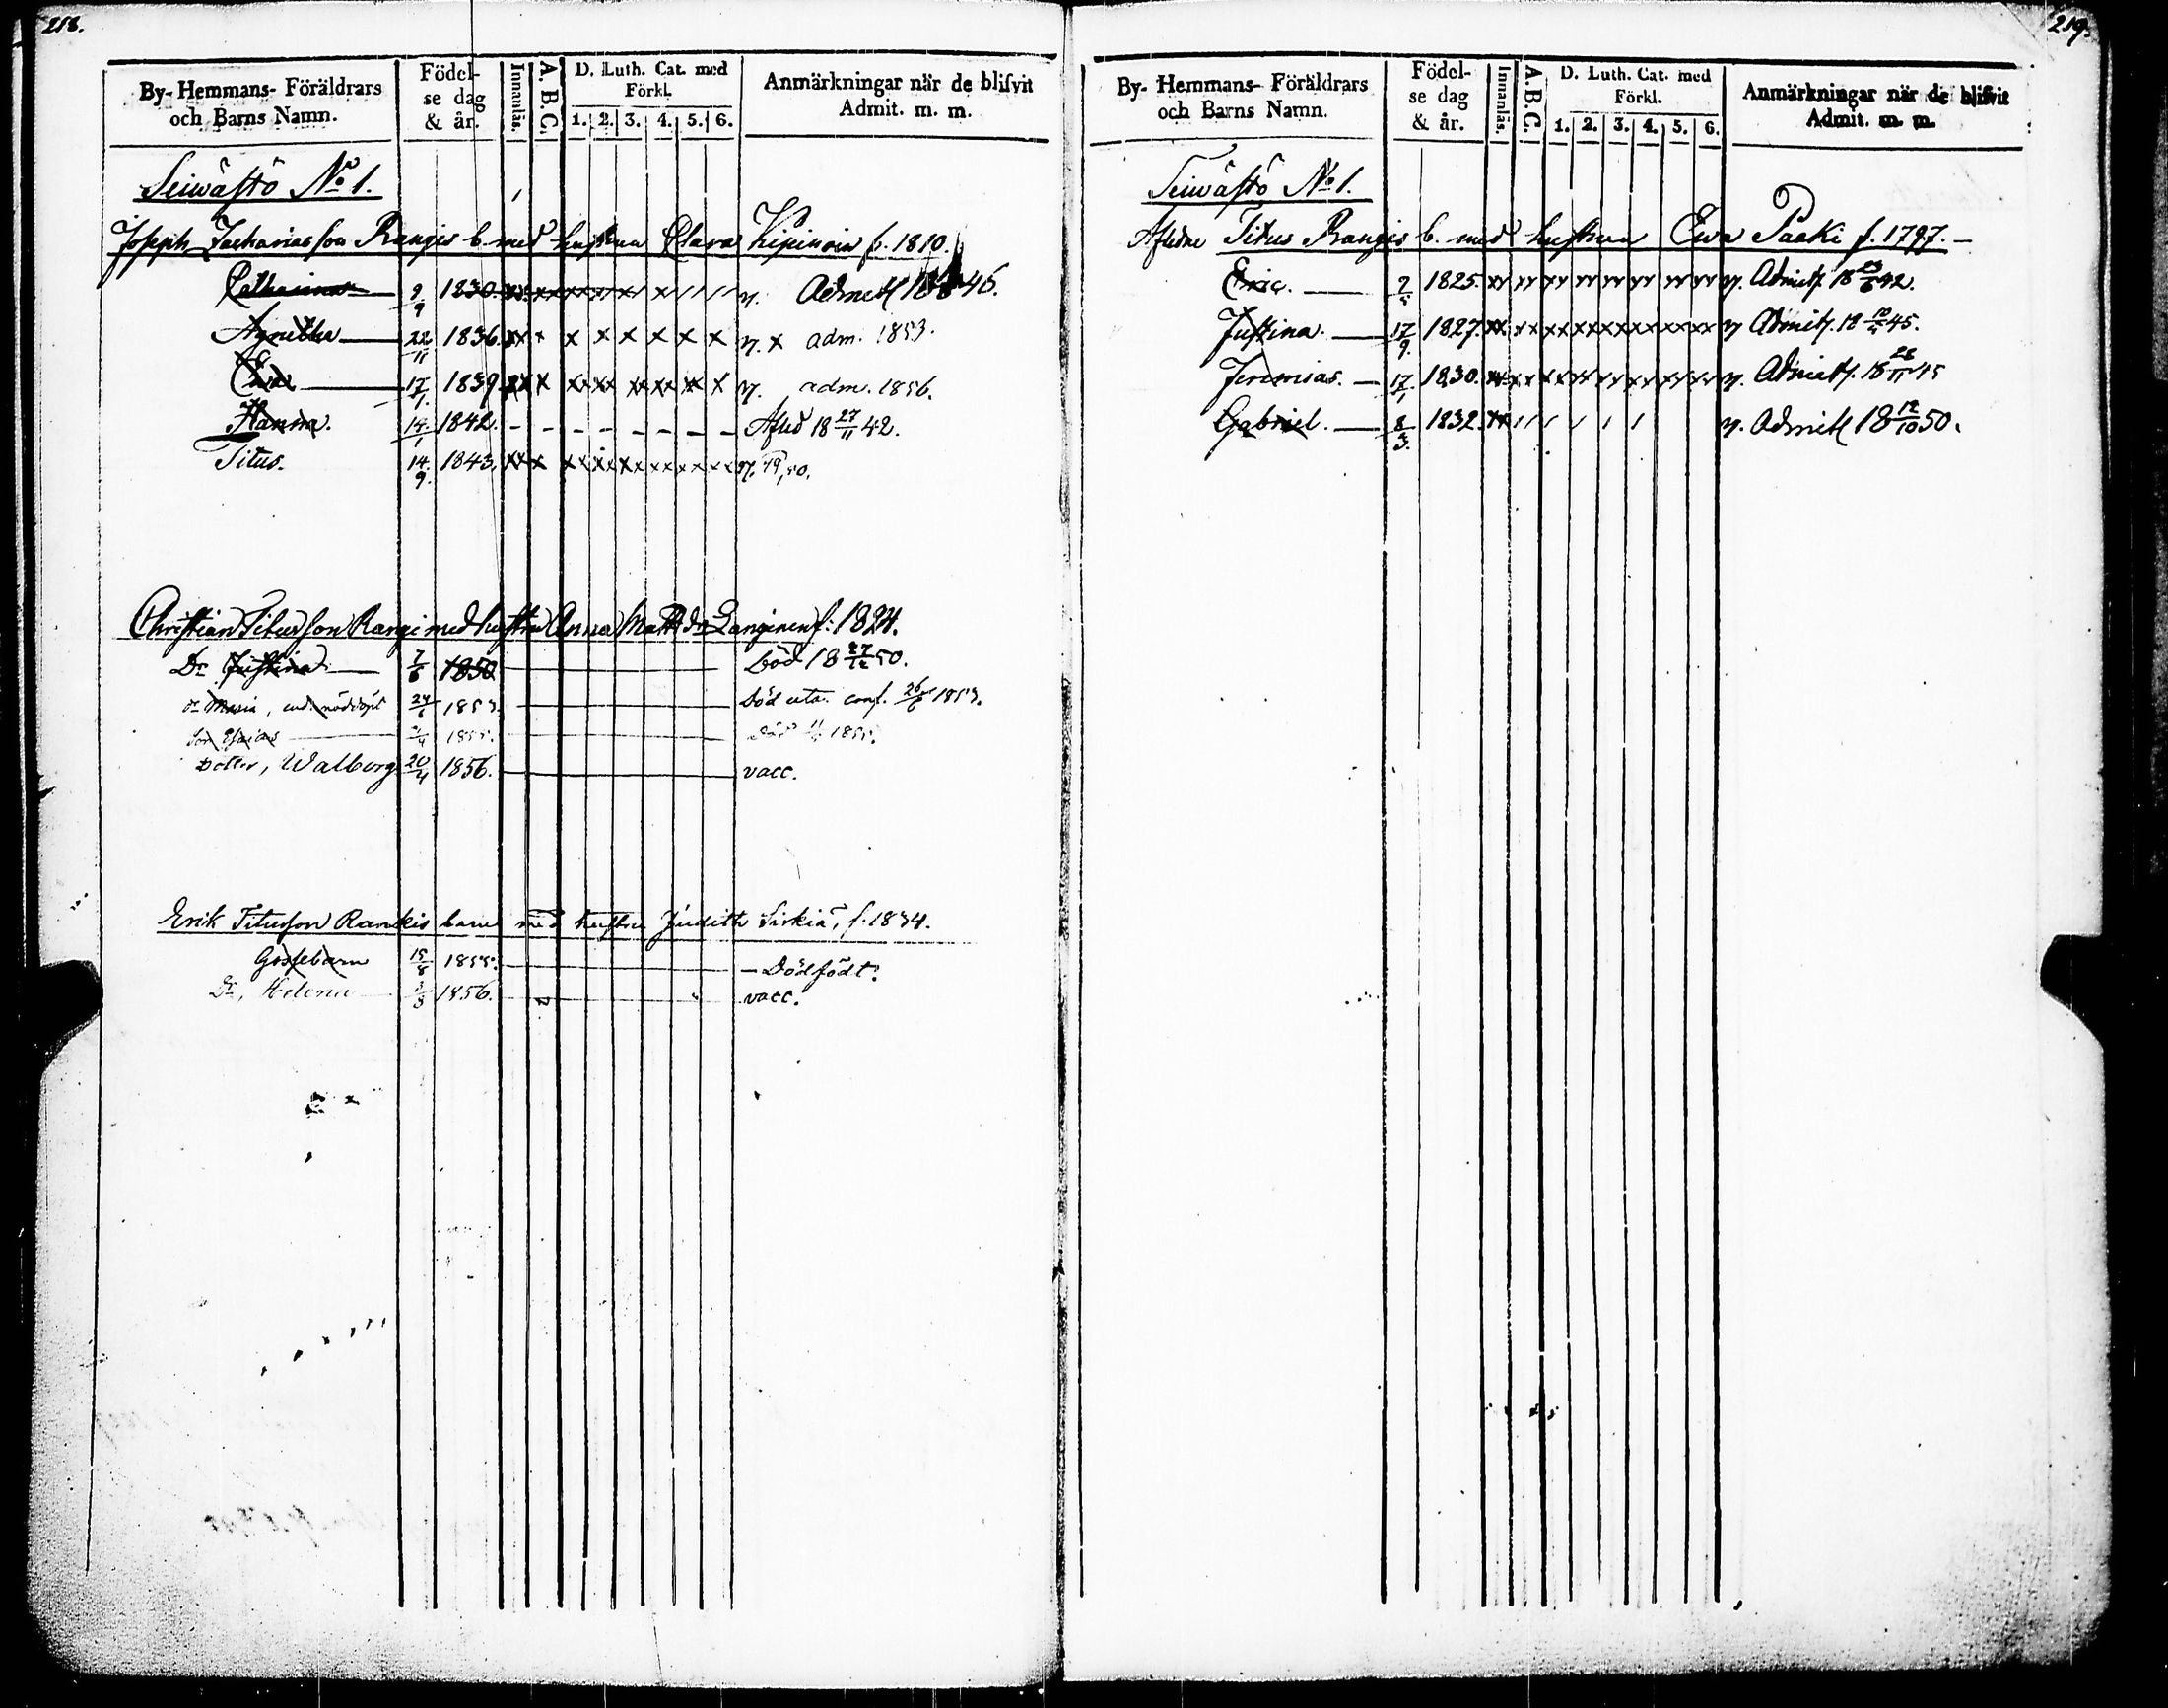 218.
By- Hemmans- Föräldrars och Barns Namn.
Födel-se dag & år.
Innanläs.
A. B. C.
D. Luth. Cat. med Förkl.
1. 2. 3. 4. 5. 6.
Anmärkningar når de blifvit Admit. m. m.
Seiwästö No 1.
Joseph Zachariasson Rangis b. med hustrun Clara Kipinoin f. 1810.
Catharina 9/9 1830 Admitt 46.
Agnetha 22/11 1836. x x x x x x x n. x adm. 1853.
Ewa 17/1. 1839 n. adm. 1856.
Hanna. 14/1 1842. - - - - - - - - Afled 18 27/11 42.
Titus. 14/9. 1843. n. 49, 50.
Christian Titusson Rangi med hustru Anna Matts dr Langinen f: 1824.
Dr Justina 7/6 1850 död 18 27/12 50.
dr Maria, nöddöpt 24/6 1853. död utan conf. 26/6 1853.
Son Esaias /4 1855. död 1855.
Dotter, Walborg 20/4 1856. vacc.
Erik Titusson Rankis barn med hustru Judith Sirkiä, f. 1834.
Gossebarn 15/8 1855. - Dödfödt.
Dr, Helena 3/3 1856. vacc.
219.
By- Hemmans- Föräldrars och Barns Namn.
Födel-se dag & år.
Innanläs.
A. B. C.
D. Luth. Cat. med Förkl.
1. 2. 3. 4. 5. 6.
Anmärkningar når de blifvit Admit. m. m.
Seiwästö No 1.
Afledne Titus Rangis b. med hustrun Ewa Paaki f. 1797.
Eric. 7/5 1825. n. Admitt. 18 23/6 42.
Justina. 17/9. 1827. n. Admitt. 18 45.
Jeremias. 17/1 1830. n. Admitt. 18 28/11 45
Gabriel. 8/3. 1832. n. Admitt 18 12/10 50.